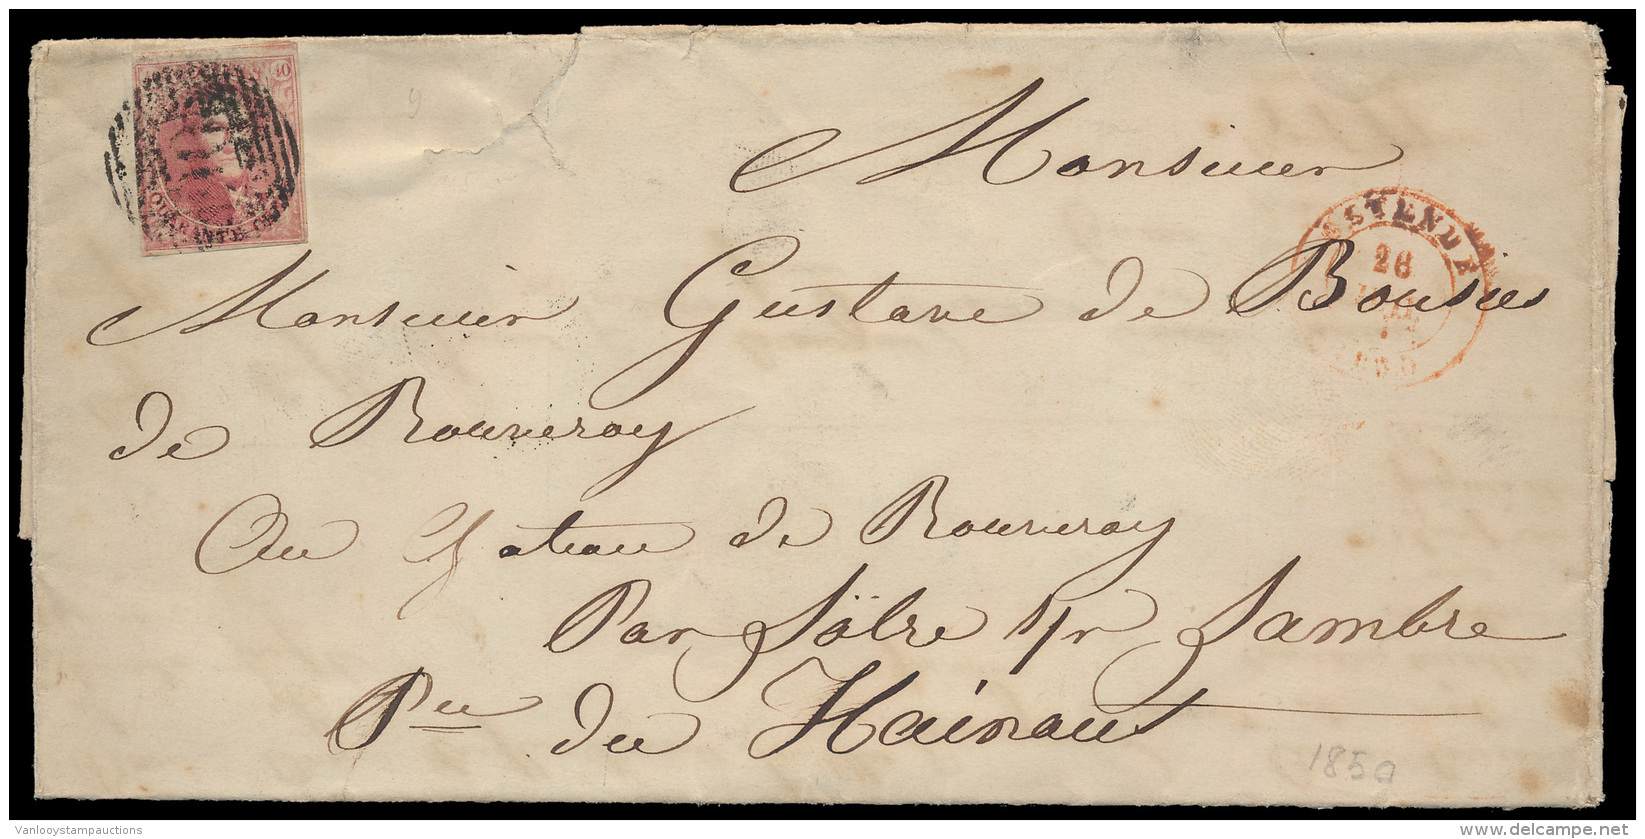 40
9
Monsieur
OSTENDE
26
Monsieur Gustave de Bousies
de Rouveroy
Au Chateau de Rouveroy
Par Sölre s/r Sambre
Pce du Hainaut
1850
Vanlooystampauctions